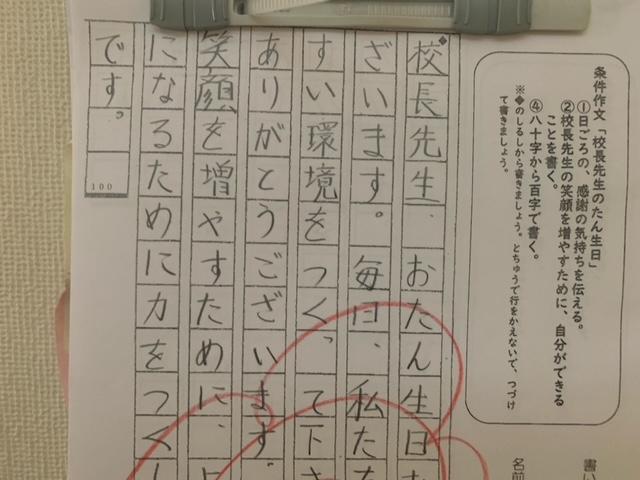 条件作文「校長先生のたん生日」
①日ごろの、感謝の気持ちを伝える。
②校長先生の笑顔を増やすために、自分ができる
ことを書く。
④八十字から百字で書く。
※◆のしるしから書きましょう。とちゅうで行をかえないで、つづけ
て書きましょう。
名前
校長先生、おたん生日お
ざいます。毎日、私たち
すい環境をつくって下さ
ありがとうございます。
笑顔を増やすために、
になるために力をつくし
です。
100